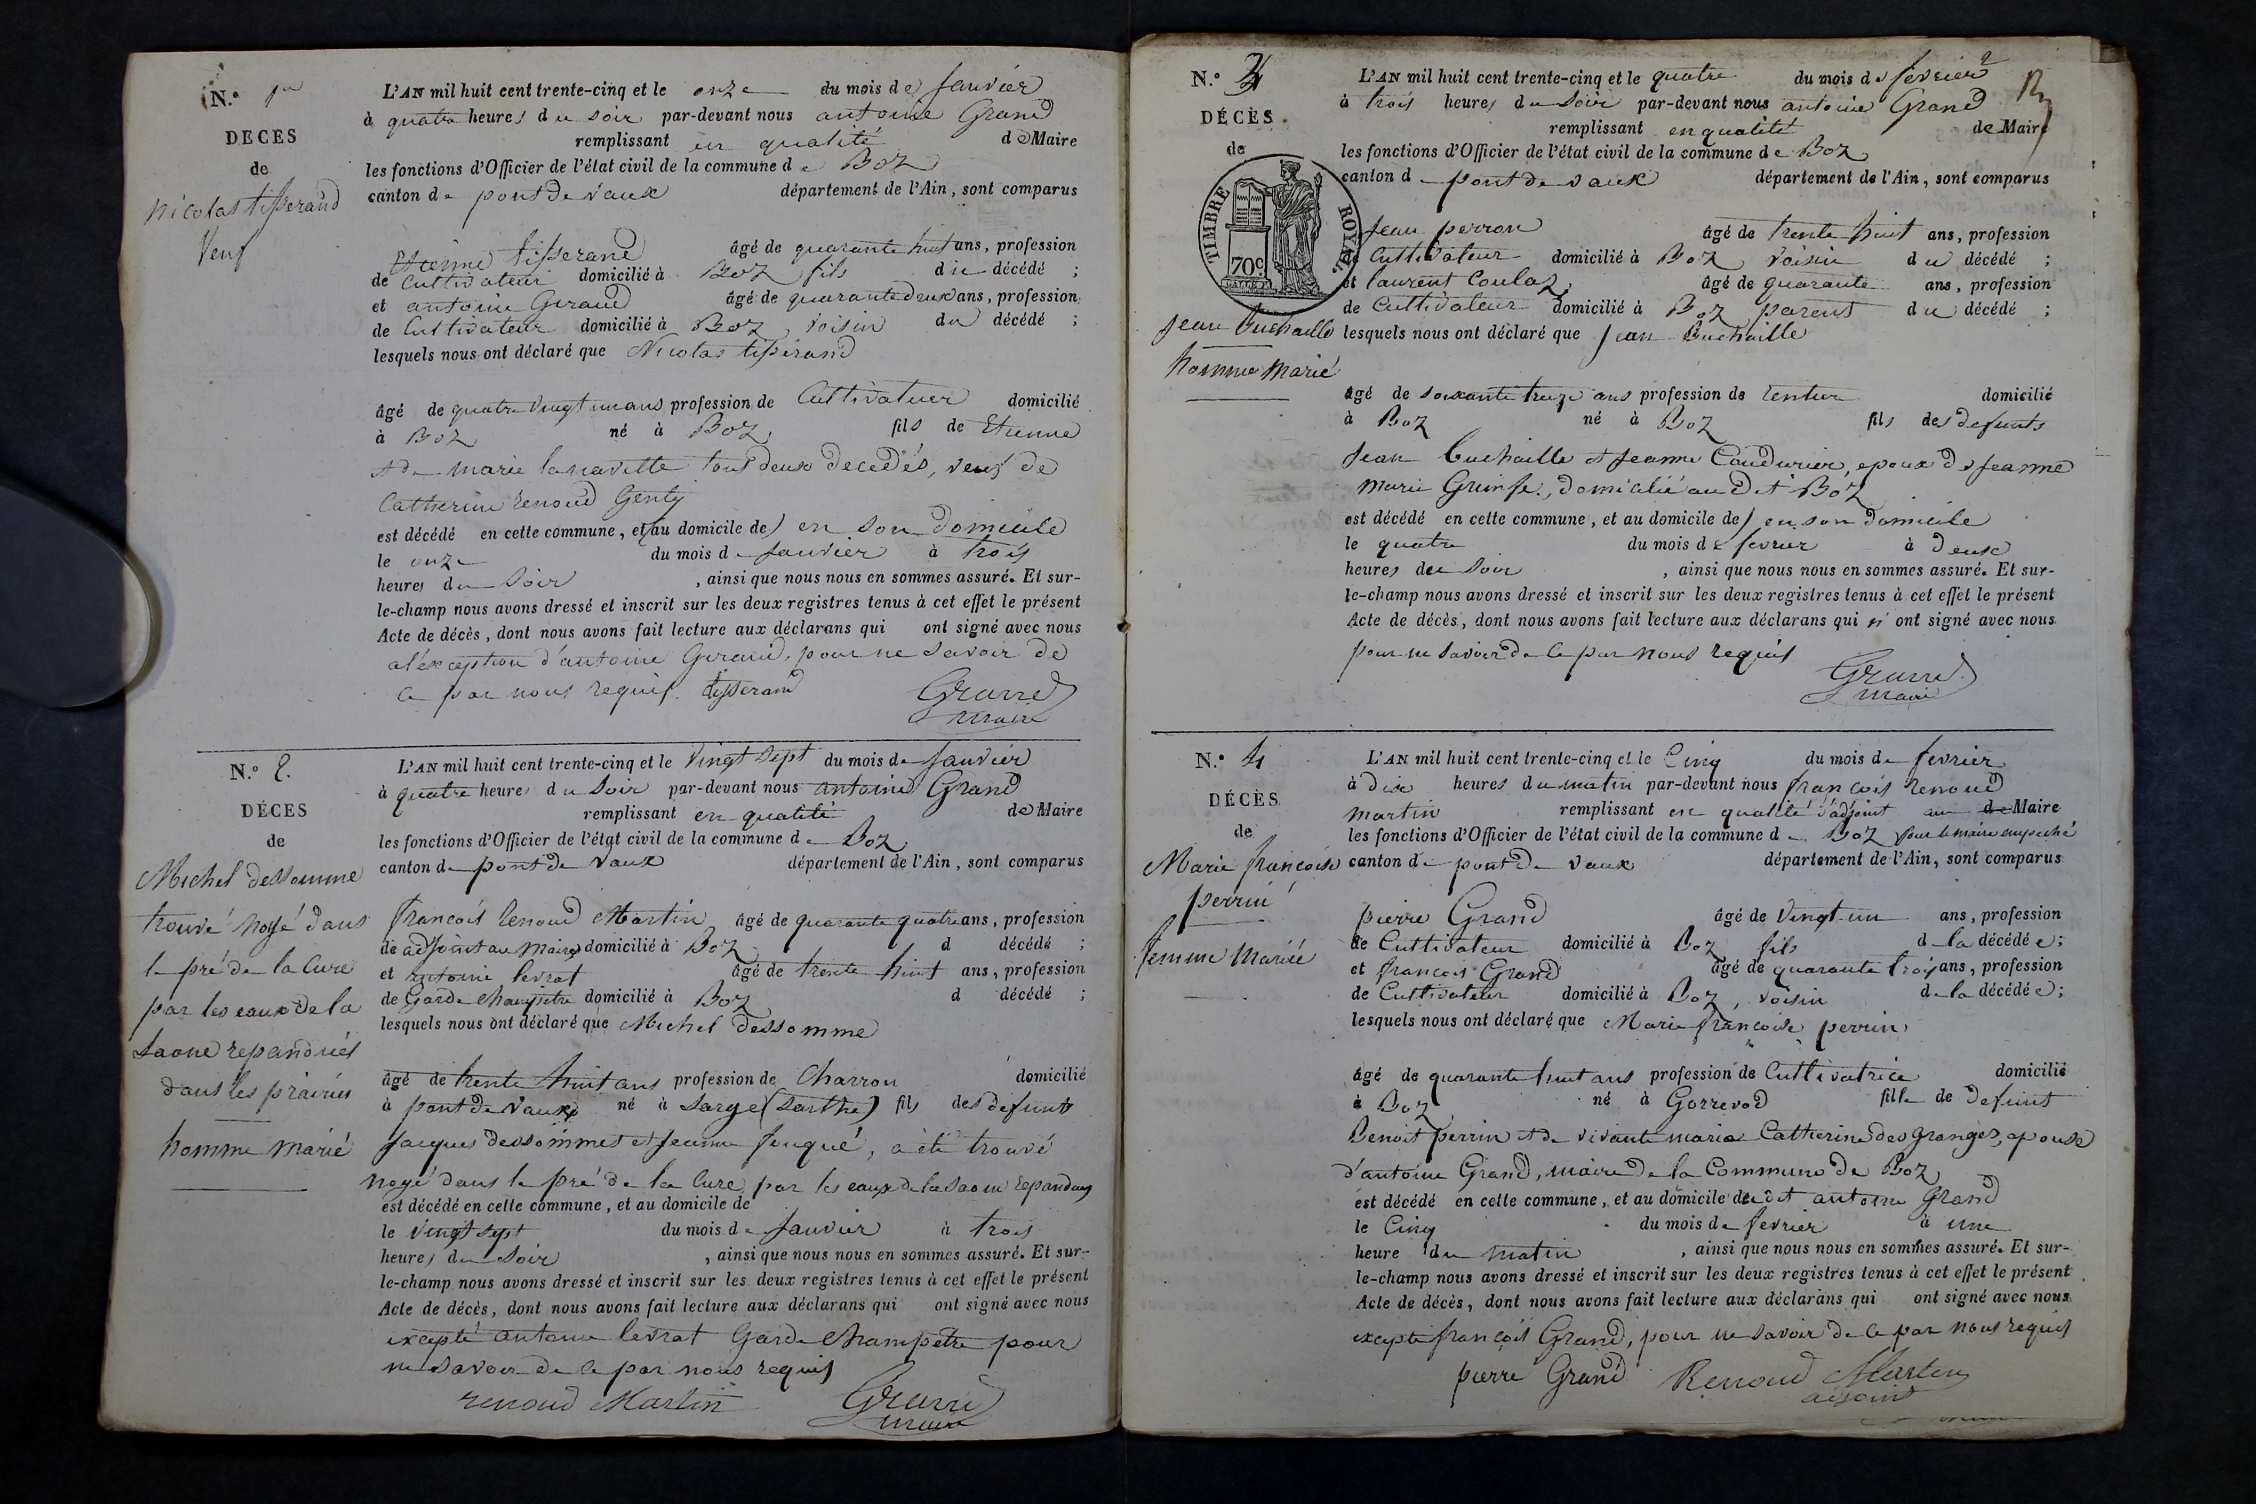 N.° 1er
DECES
de
Nicolas tisserand
Veuf
L'AN mil huit cent trente-cinq et le onze du mois de Janvier
à quatre heures du soir par-devant nous antoine Grand
remplissant en qualité de Maire
les fonctions d'Officier de l'état civil de la commune de Boz
canton de pont de vaux département de l'Ain, sont comparus
Etienne tisserand âgé de quarante huit ans, profession
de Cultivateur domicilié à Boz fils du décédé ;
et antoine Geraud âgé de quarante deux ans, profession
de Cultivateur domicilié à Boz, voisin du décédé ;
lesquels nous ont déclaré que Nicolas tisserand
âgé de quatre vingt un ans profession de Cultivatuer domicilié
à Boz né à Boz, fils de Etienne
et de marie lanavette tous deux decedés, veuf de
Catherine renoud Genty
est décédé en cette commune, et (au domicile de) en son domicile
le onze du mois de Janvier à trois
heures du Soir, ainsi que nous nous en sommes assuré. Et sur-
le-champ nous avons dressé et inscrit sur les deux registres tenus à cet effet le présent
Acte de décès, dont nous avons fait lecture aux déclarans qui ont signé avec nous
al'exception d'antoine Geraud, pour ne savoir de
ce par nous requis. tisserand Grand
maire
N.° 2.
DÉCES
de
Michel dessomme
trouvé noyé dans
le pré de la Cure
par les eaux de la
Saone repandues
dans les prairies
homme marié
L'AN mil huit cent trente-cinq et le vingt sept du mois de Janvier
à quatre heures du Soir par-devant nous antoine Grand
remplissant en qualité de Maire
les fonctions d'Officier de l'état civil de la commune de Boz
canton de pont de vaux département de l'Ain, sont comparus
francois renoud Martin âgé de quarante quatre ans, profession
de adjoint au Maire domicilié à Boz d décédé ;
et antoine levrat âgé de trente huit ans, profession
de Garde champetre domicilié à Boz d décédé ;
lesquels nous ont déclaré que Michel dessomme
âgé de trente huit ans profession de Charron domicilié
à pont de Vaux né à Sarge (Sarthe) fils des defunts
Jacques dessommes et Jeanne fouqué, a été trouvé
noyé dans le pré de la Cure par les eaux de la Saone repandues
est décédé en cette commune, et au domicile de
le vingt sept du mois de Janvier à trois
heures du Soir, ainsi que nous nous en sommes assuré. Et sur-
le-champ nous avons dressé et inscrit sur les deux registres tenus à cet effet le présent
Acte de décès, dont nous avons fait lecture aux déclarans qui ont signé avec nous
excepté antoine levrat Garde champetre pour
ne savoir de ce par nous requis
renoud Martin Grand
maire
2
N.° 3
DÉCÈS
de
TIMBRE ROYAL
70c.
Jean Buchaille
homme marié
L'AN mil huit cent trente-cinq et le quatre du mois de fevrier
à trois heures du Soir par-devant nous antoine Grand
remplissant en qualité de Maire
les fonctions d'Officier de l'état civil de la commune de Boz
canton d pont de vaux département de l'Ain, sont comparus
Jean perron âgé de trente huit ans, profession
Cultivateur domicilié à Boz voisin du décédé ;
et laurent Coulaz, âgé de quarante ans, profession
de Cultivateur domicilié à Boz parent du décédé ;
lesquels nous ont déclaré que Jean Buchaille
âgé de soixante treize ans profession de rentier domicilié
à Boz né à Boz fils des defunts
Jean buchaille et Jeanne Coudurier, epoux de Jeanne
marie , domicilié au dit Boz
est décédé en cette commune, et au domicile de) en son domicile
le quatre du mois de fevrier à deux
heures du Soir, ainsi que nous nous en sommes assuré. Et sur-
le-champ nous avons dressé et inscrit sur les deux registres tenus à cet effet le présent
Acte de décès, dont nous avons fait lecture aux déclarans qui n'ont signé avec nous
pour ne savoir de ce par nous requis
Grand
maire
N.° 4
DÉCÈS
de
Marie françoise
perrin
femme mariée
L'AN mil huit cent trente-cinq et le Cinq du mois de fevrier
à dix heures du matin par-devant nous françois renoud
martin remplissant en qualité d'adjoint au de Maire
les fonctions d'Officier de l'état civil de la commune de Boz pour le maire empeché
canton de pont de vaux département de l'Ain, sont comparus
pierre Grand âgé de vingt-un ans, profession
de Cultivateur domicilié à Boz fils de la décédée ;
et françois Grand âgé de quarante trois ans, profession
de Cultivateur domicilié à Boz, voisin de la décédée ;
lesquels nous ont déclaré que Marie françoise perrin
âgé de quarante huit ans profession de Cultivatrice domicilié
à Boz né à Gorrevod fille de defunt
Benoit perrin et de vivante marie Catherine desgranges, epouse
d'antoine Grand, maire de la Commune de Boz
est décédé en cette commune, et au domicile dudit antoine Grand
le Cinq du mois de fevrier à une
heure du matin, ainsi que nous nous en sommes assuré. Et sur-
le-champ nous avons dressé et inscrit sur les deux registres tenus à cet effet le présent
Acte de décès, dont nous avons fait lecture aux déclarans qui ont signé avec nous
excepté françois Grand, pour ne savoir de ce par nous requis
pierre Grand Renoud Martin
adjoint